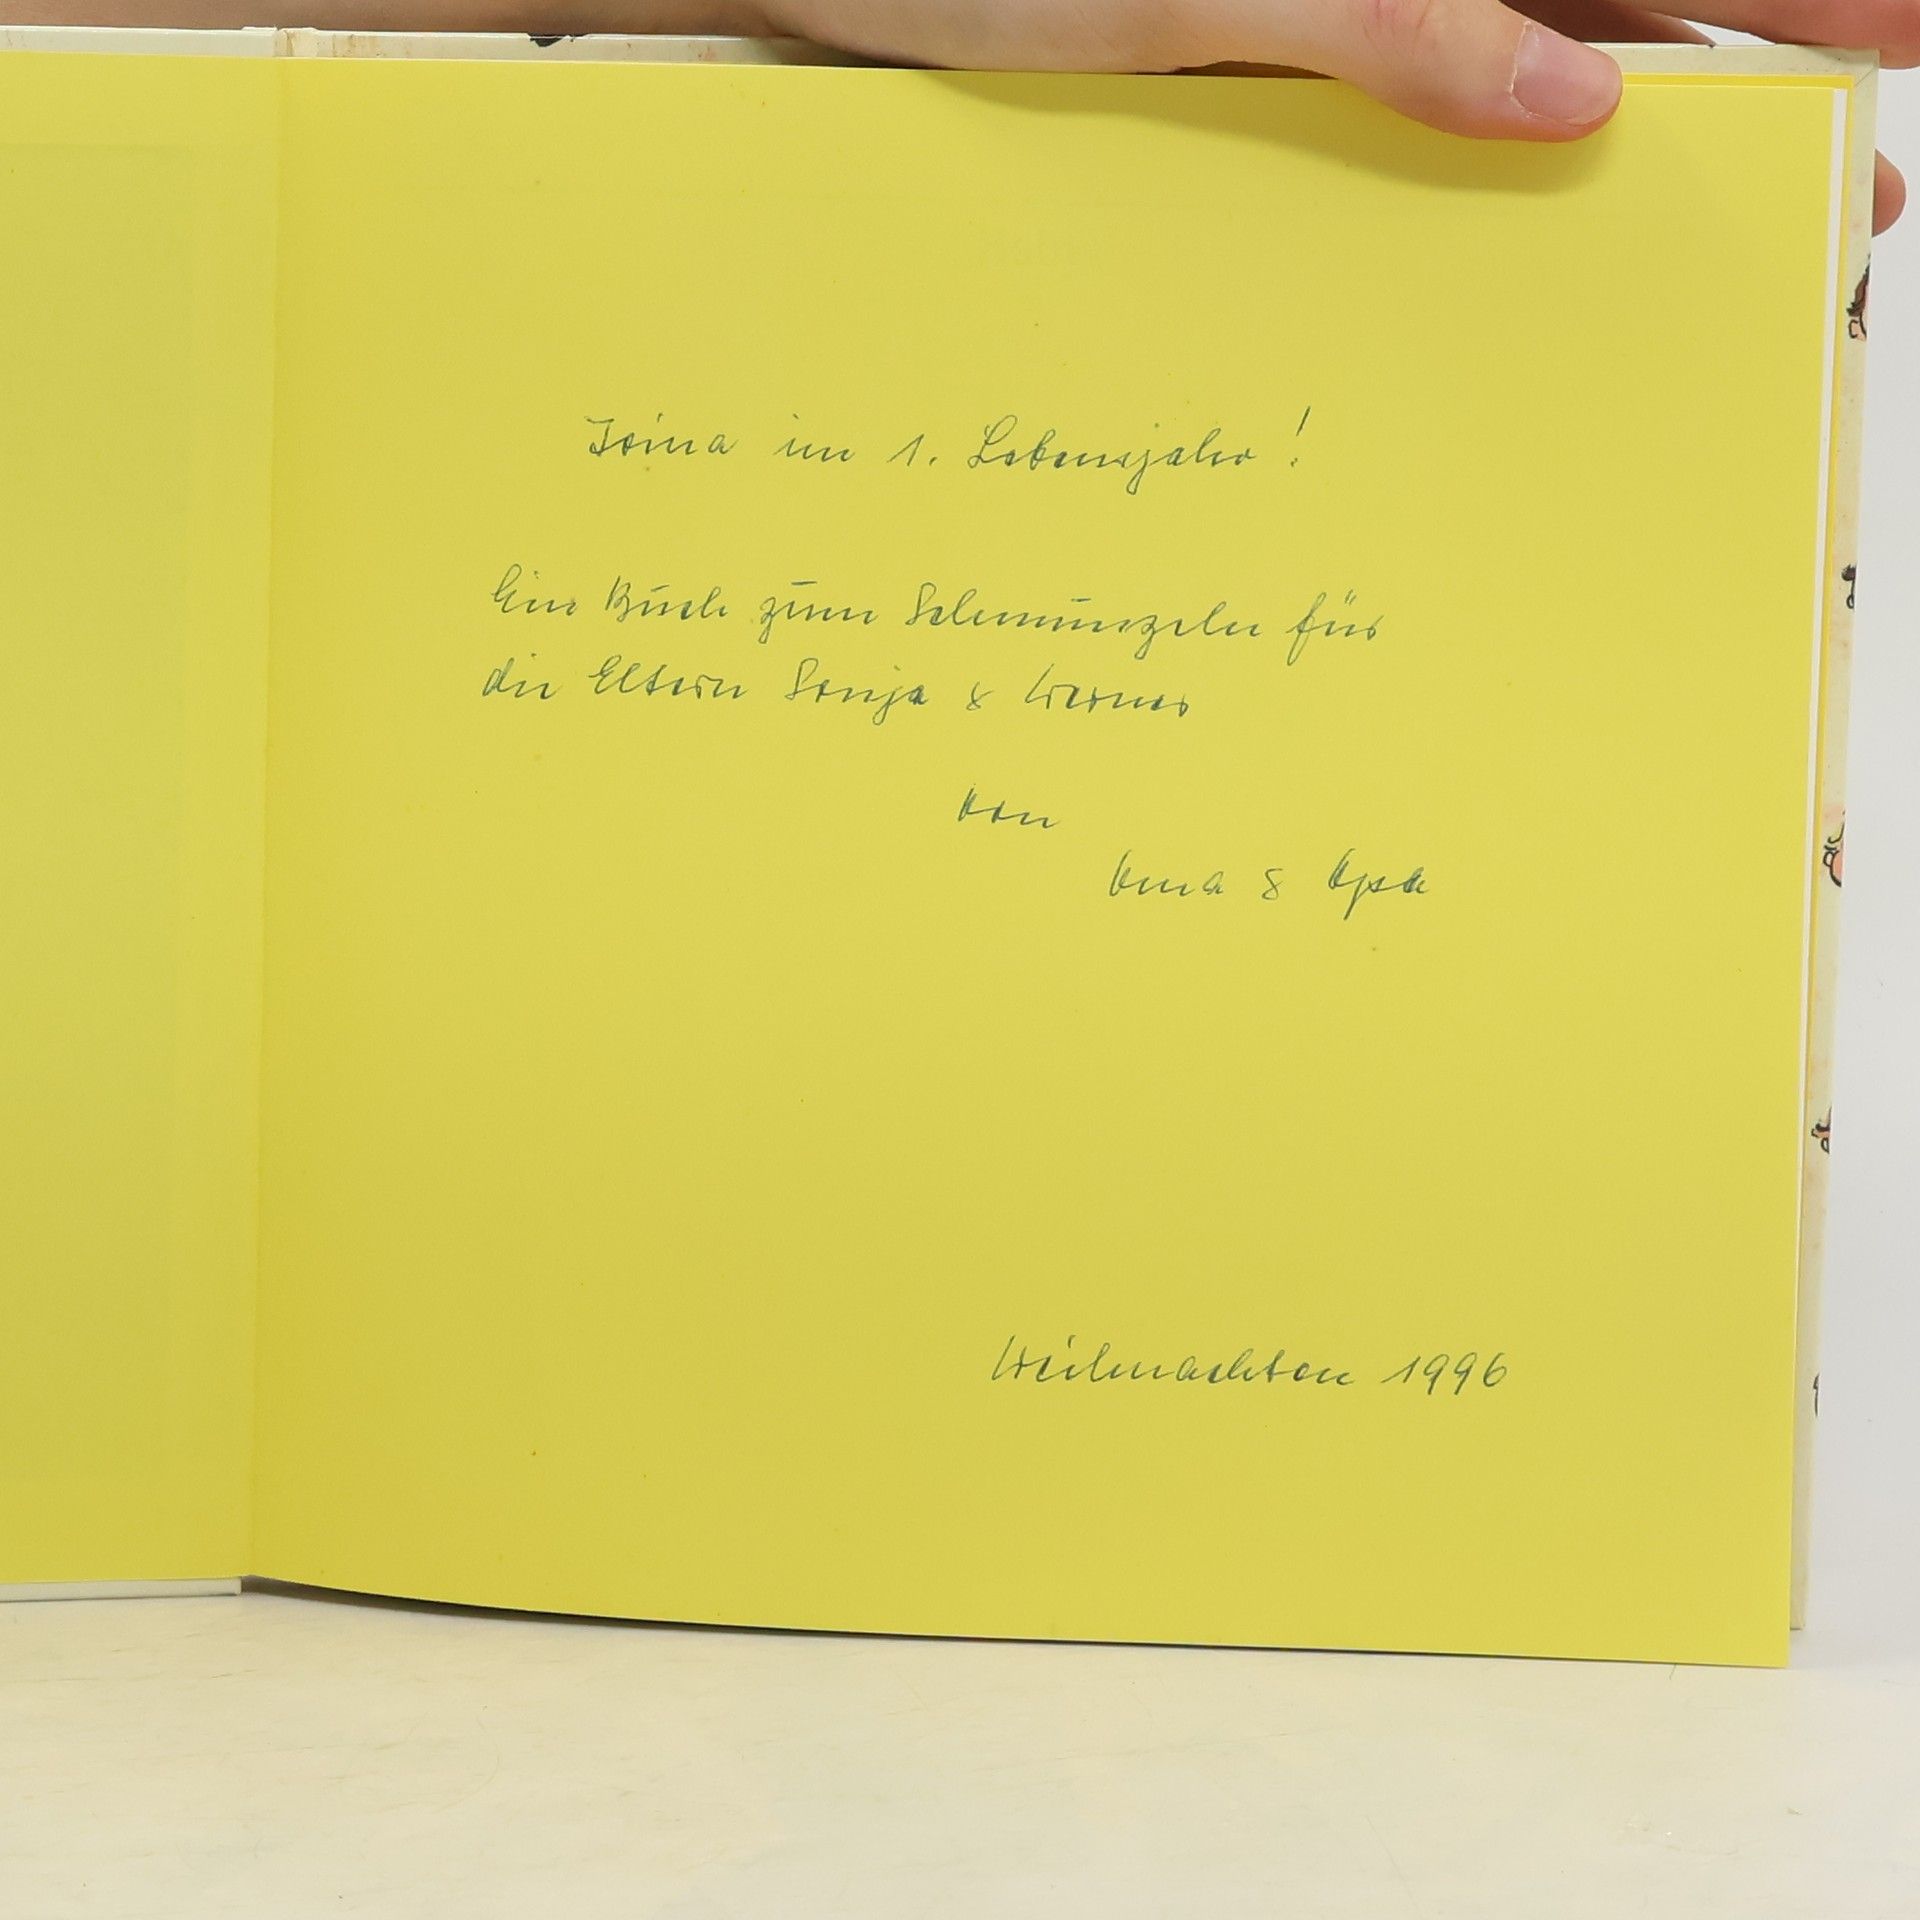 im 1. Lebensjahr!
Ein Buch zum Schmunzeln für
die Eltern Sonja & Werner
von
Oma & Opa
Weihnachten 1996